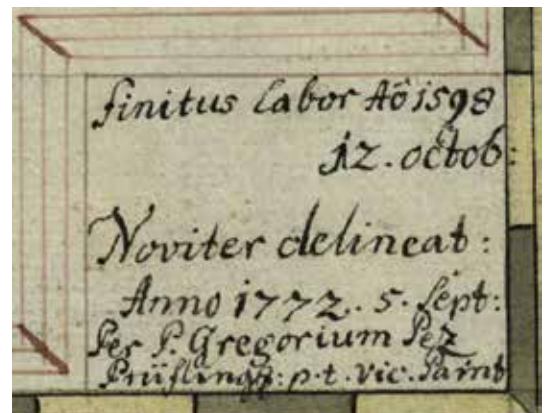 finitus labor Aö 1598
12. octob:
Noviter delineat:
Anno 1772. 5. Sept:
Per P. Gregorium Pez
Prüfling: p.t. vic.